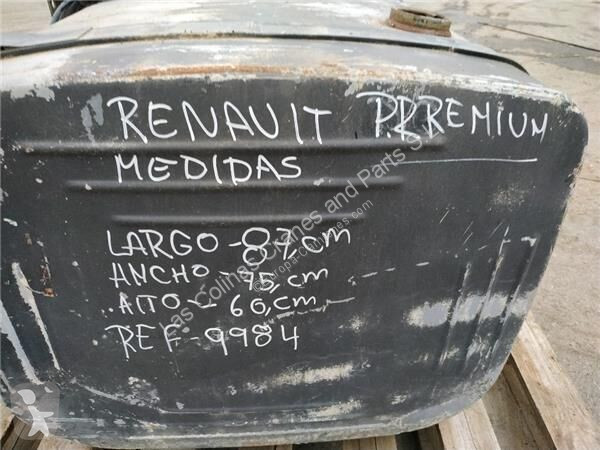 RENAULT PRREMIUM
MEDIDAS
LARGO - 87, cm
ANCHO - 75, cm
AlTO - 60, cm
REF - 9984
Las Colinas Cranes and Parts S
Europa-Camiones.com